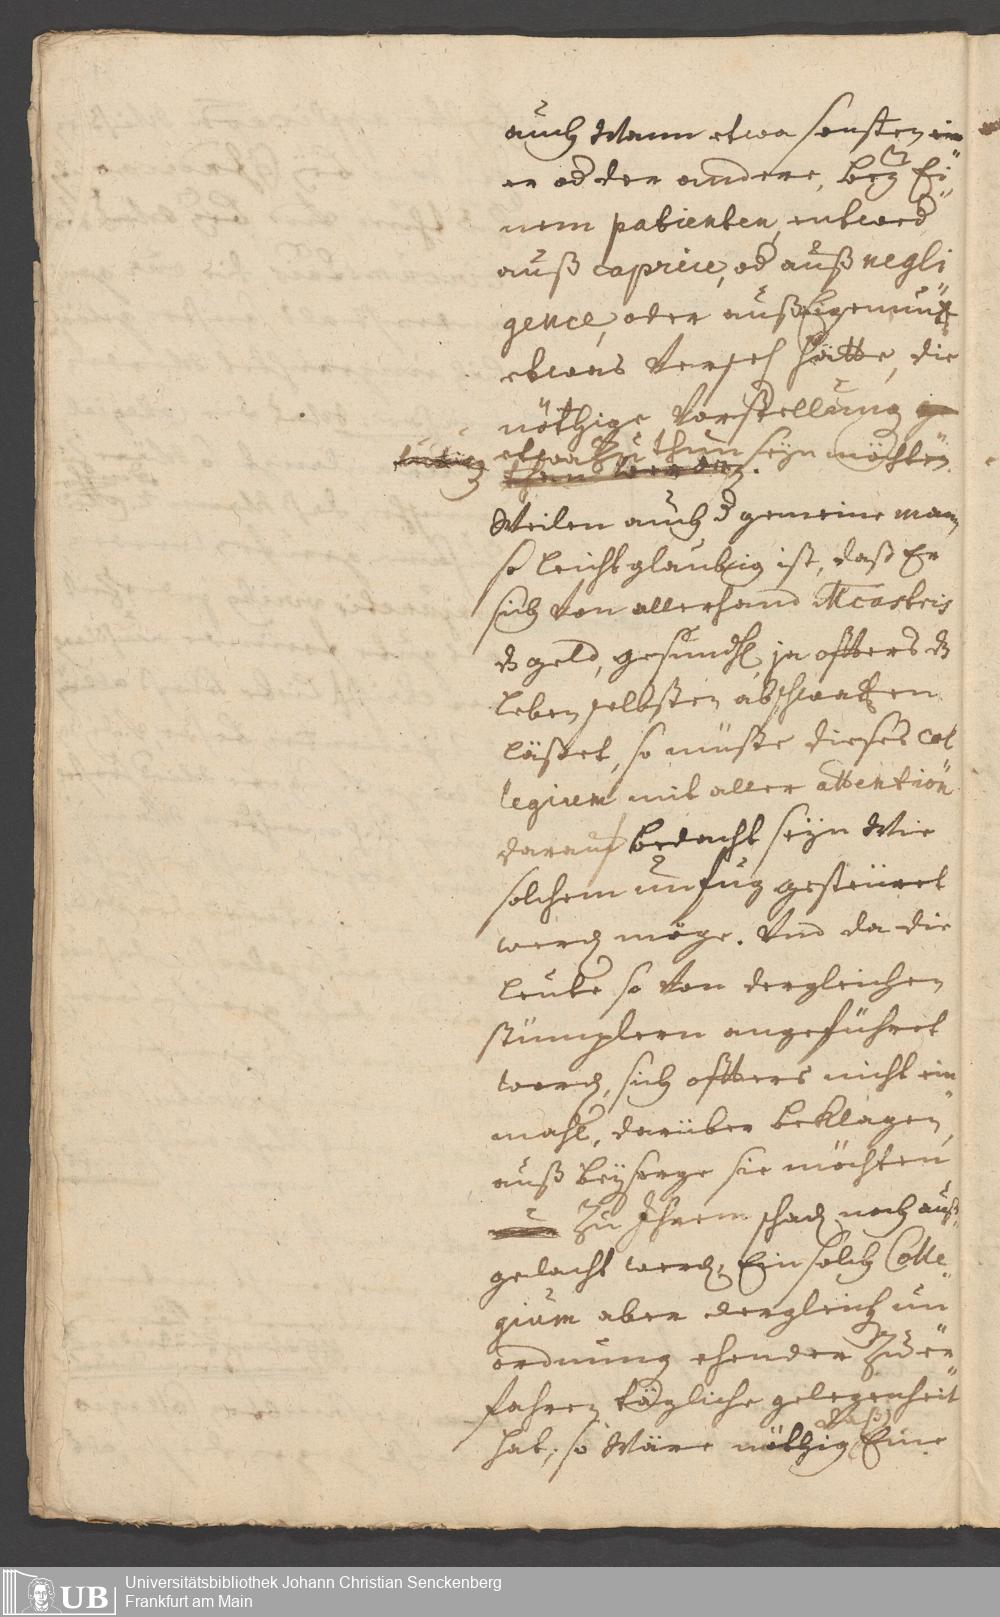 auch Wann etwa sonsten ein
er od der andere, beÿ Ei¨
nem patienten, entwed
auß caprice, od auß negli
gence, oder auß Eigennutz
etwas Verseh hätte, die
nöthige Vorstellung
etwa Zu thun seÿn möchte.
than werden.
Weilen auch d gemeine mann
so leichtglaubig ist, daß Er
sich Von allerhand
dz geld, gesundh, ja öffters dz
leben selbsten abschwatzen
läßet, so müste dieses Col
legium mit aller attention
darauf bedacht seÿn Wie
solchem unfug gesteüret
werd möge. Vnd da die
leute so Von dergleichen
stümplern angeführet
werd, sich öffters nicht ein
mahl, darüber beklagen,
auß beÿsorge sie möchten
Zu Ihrem schad noch auß¨
gelacht werd, Ein solch Colle¨
gium aber dergleich un
ordnung ehender Zu er¨
fahren tägliche gelegenheit
hat, so Wäre nöthig daß Eine
Universitätsbibliothek Johann Christian Senckenberg
Frankfurt am Main
UB